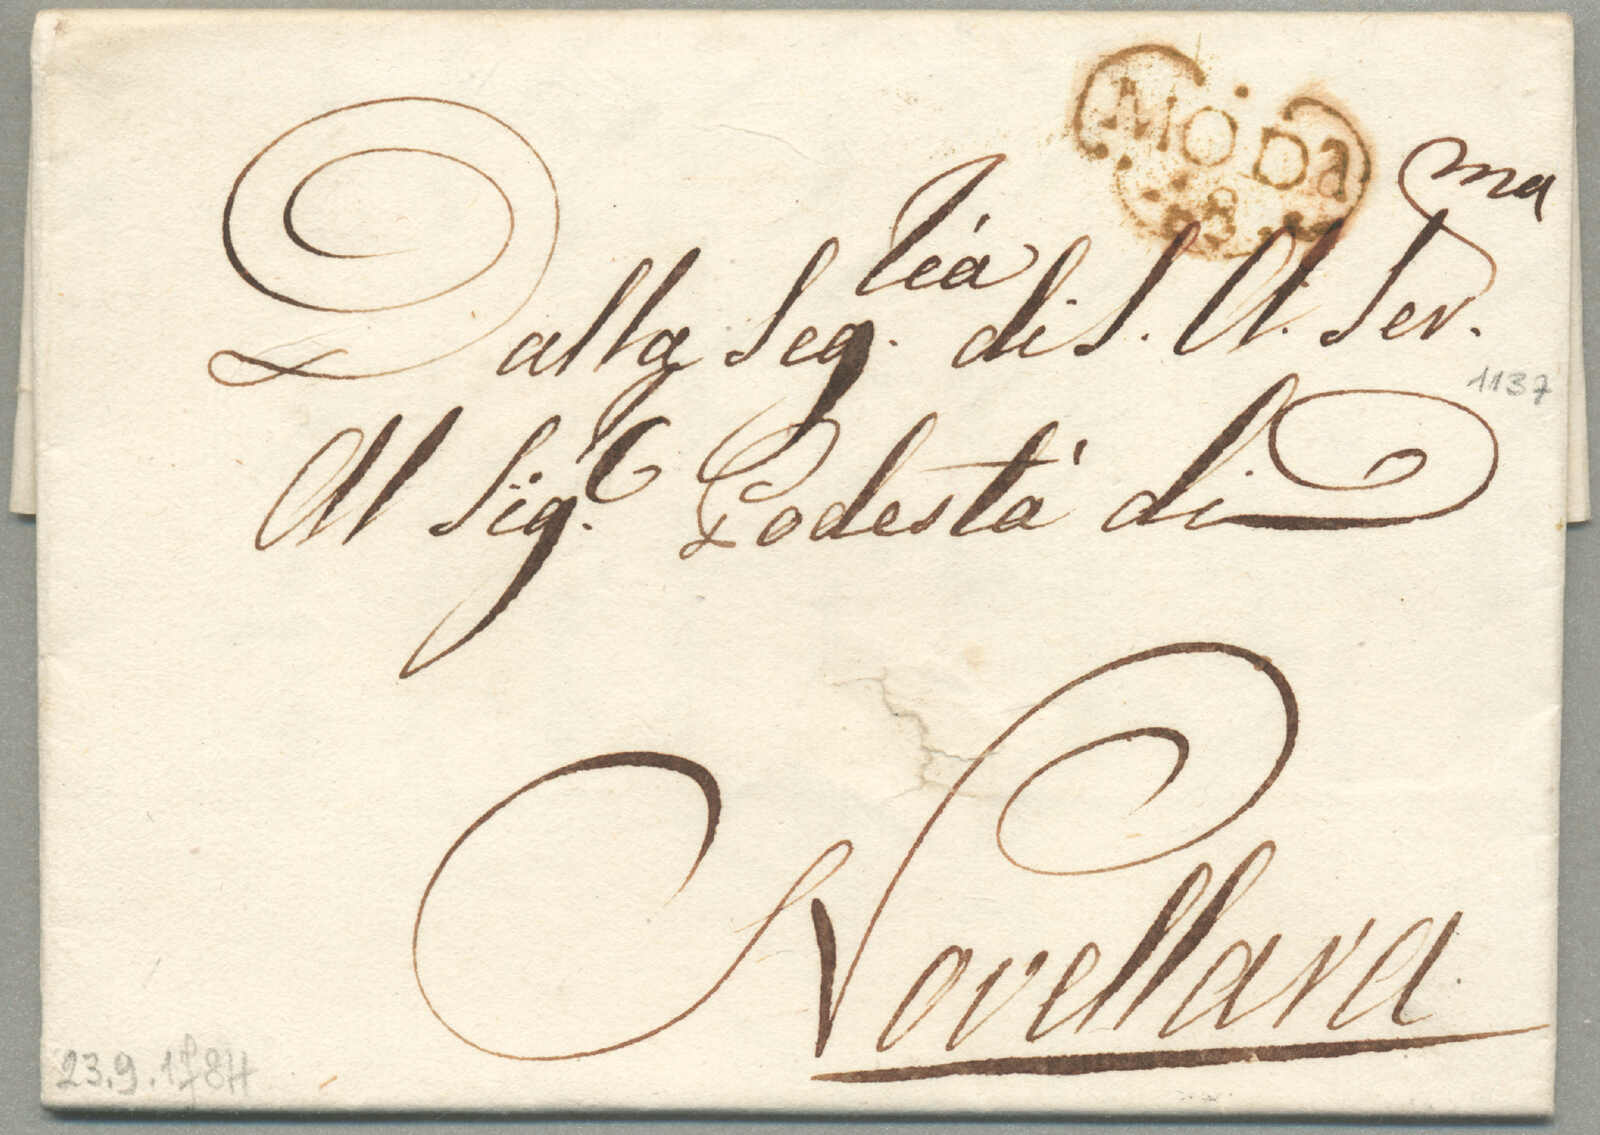 MODa
Dalla Seg.ria di S. A. Ser.ma
1137
Al Sig.r Podestà di
Novellara.
23.9.1784